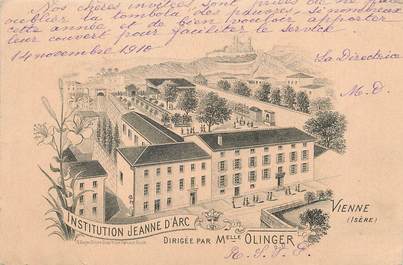 Nos chères invitées sont priées de ne pas
oublier la tombola des pauvres si nombreux
cette année & de bien vouloir apporter
leur couvert pour faciliter le service
14 novembre 1910
La Directrice
M. D.
VIENNE
(ISÈRE)
INSTITUTION JEANNE D'ARC
DIRIGÉE PAR MELLE OLINGER
R. S. V. P.